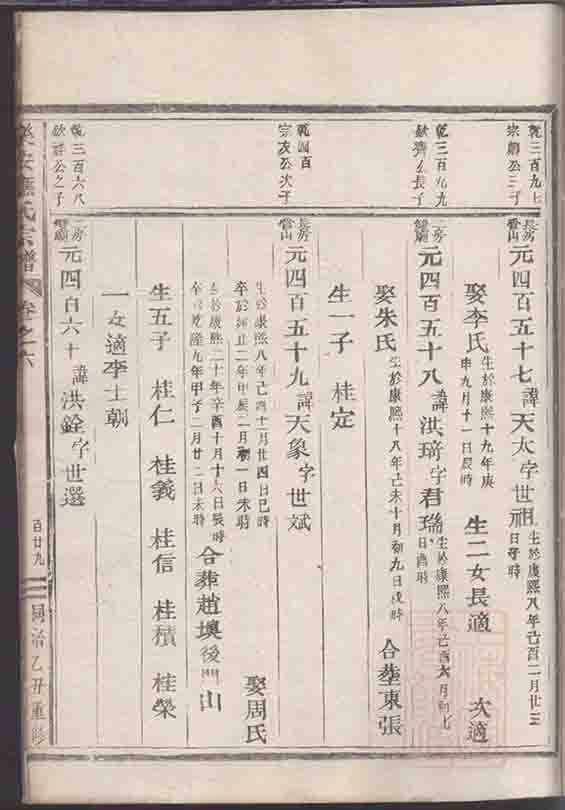 乾三百九七
宗嗣公三子
長房
雪山
元四百五十七諱天太字世祖
生於康熙八年己酉二月廿三
日子時
娶李氏
生於康熙十九年庚
申九月十一日辰時
生二女長適
次適
乾三百九九
欽齊公長子
二房
元四百五十八諱洪琦字君瑞
生於康熙八年己酉六月初七
日酉時
娶朱氏
生於康熙十八年己未十月初九日戌時
合塟東張
生一子
桂定
乾四百
宗友公次子
長房
雪山
元四百五十九諱天象字世斌
生於康熙八年己酉十二月廿四日巳時
卒於雍正二年甲辰二月初一日未時
娶周氏
生於康熙二十年辛酉十月十六日辰時
卒於乾隆九年甲子二月廿二日未時
合葬趙墺後門山
生五子
桂仁
桂義
桂信
桂積
桂榮
一女適李士朝
乾三百六八
欽祥公之子
二房
元四百六十諱洪銓字世選
氏宗譜
卷之六
百廿九
同治乙丑重修